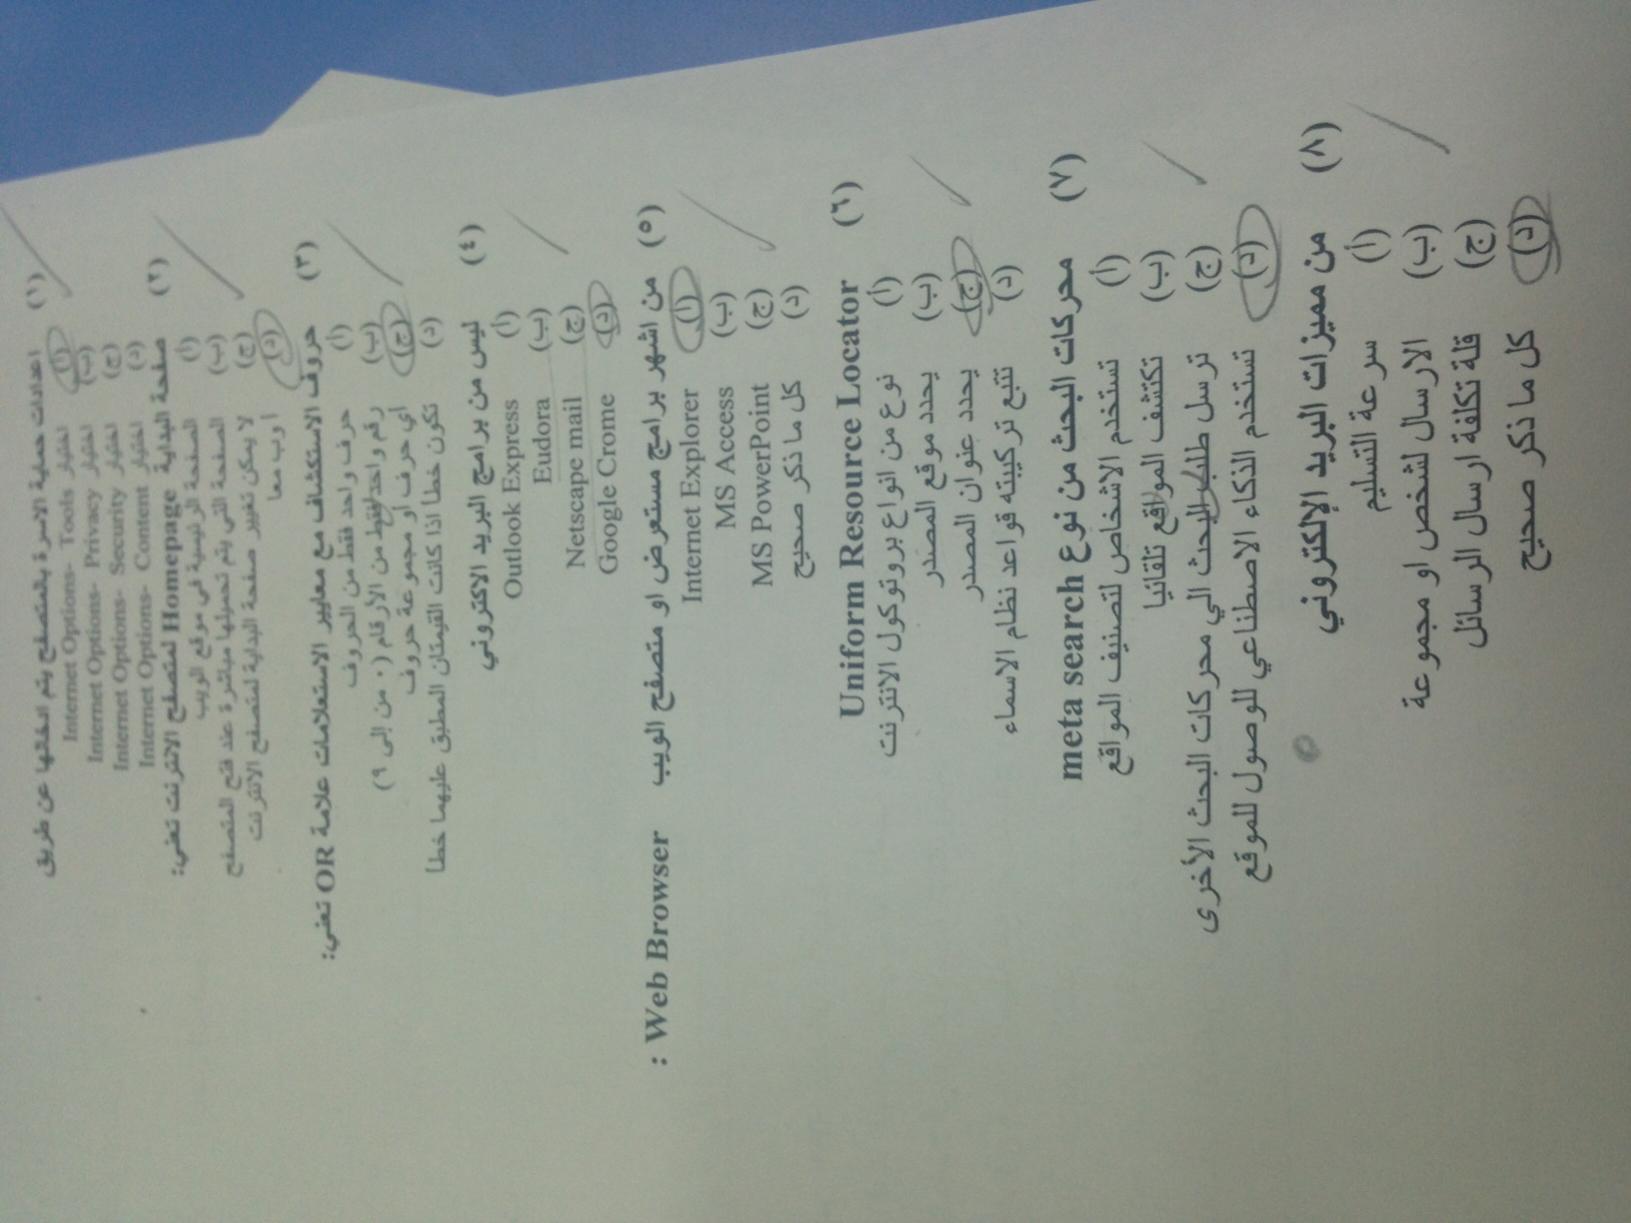 (١) اعدادات حماية الاسرة بالمتصفح يتم ايقافها عن طريق
(أ) اختيار Internet Options- Tools
(ب) اختيار Internet Options- Privacy
(ج) اختيار Internet Options- Security
(د) اختيار Internet Options- Content
(٢) صفحة البداية Homepage لمتصفح الانترنت تعني:
(أ) الصفحة الرئيسية في موقع الويب
(ب) الصفحة التي يتم تحميلها مباشرة عند فتح المتصفح
(ج) لا يمكن تغيير صفحة البداية لمتصفح الانترنت
(د) ا وب معا
(٣) حروف الاستكشاف مع معايير الاستعلامات علامة OR تعني:
(أ) حرف واحد فقط من الحروف
(ب) رقم واحد فقط من الأرقام (٠ من إلى ٩)
(ج) اي حرف او مجموعة حروف
(د) تكون خطا اذا كانت القيمتان المطبق عليهما خطا
(٤) ليس من برامج البريد الاكتروني
(أ) Outlook Express
(ب) Eudora
(ج) Netscape mail
(د) Google Crome
(٥) من اشهر برامج مستعرض او متصفح الويب Web Browser :
(أ) Internet Explorer
(ب) MS Access
(ج) MS PowerPoint
(د) كل ما ذكر صحيح
(٦) Uniform Resource Locator
(أ) نوع من انواع بروتوكول الانترنت
(ب) يحدد موقع المصدر
(ج) يحدد عنوان المصدر
(د) تتبع تركيبته قواعد نظام الاسماء
(٧) محركات البحث من نوع meta search
(أ) تستخدم الاشخاص لتصنيف المواقع
(ب) تكتشف المواقع تلقانيا
(ج) ترسل طلب البحث الي محركات البحث الأخرى
(د) تستخدم الذكاء الاصطناعي للوصول للموقع
(٨) من مميزات البريد الإلكتروني
(أ) سرعة التسليم
(ب) الارسال لشخص او مجموعة
(ج) قلة تكلفة ارسال الرسائل
(د) كل ما ذكر صحيح